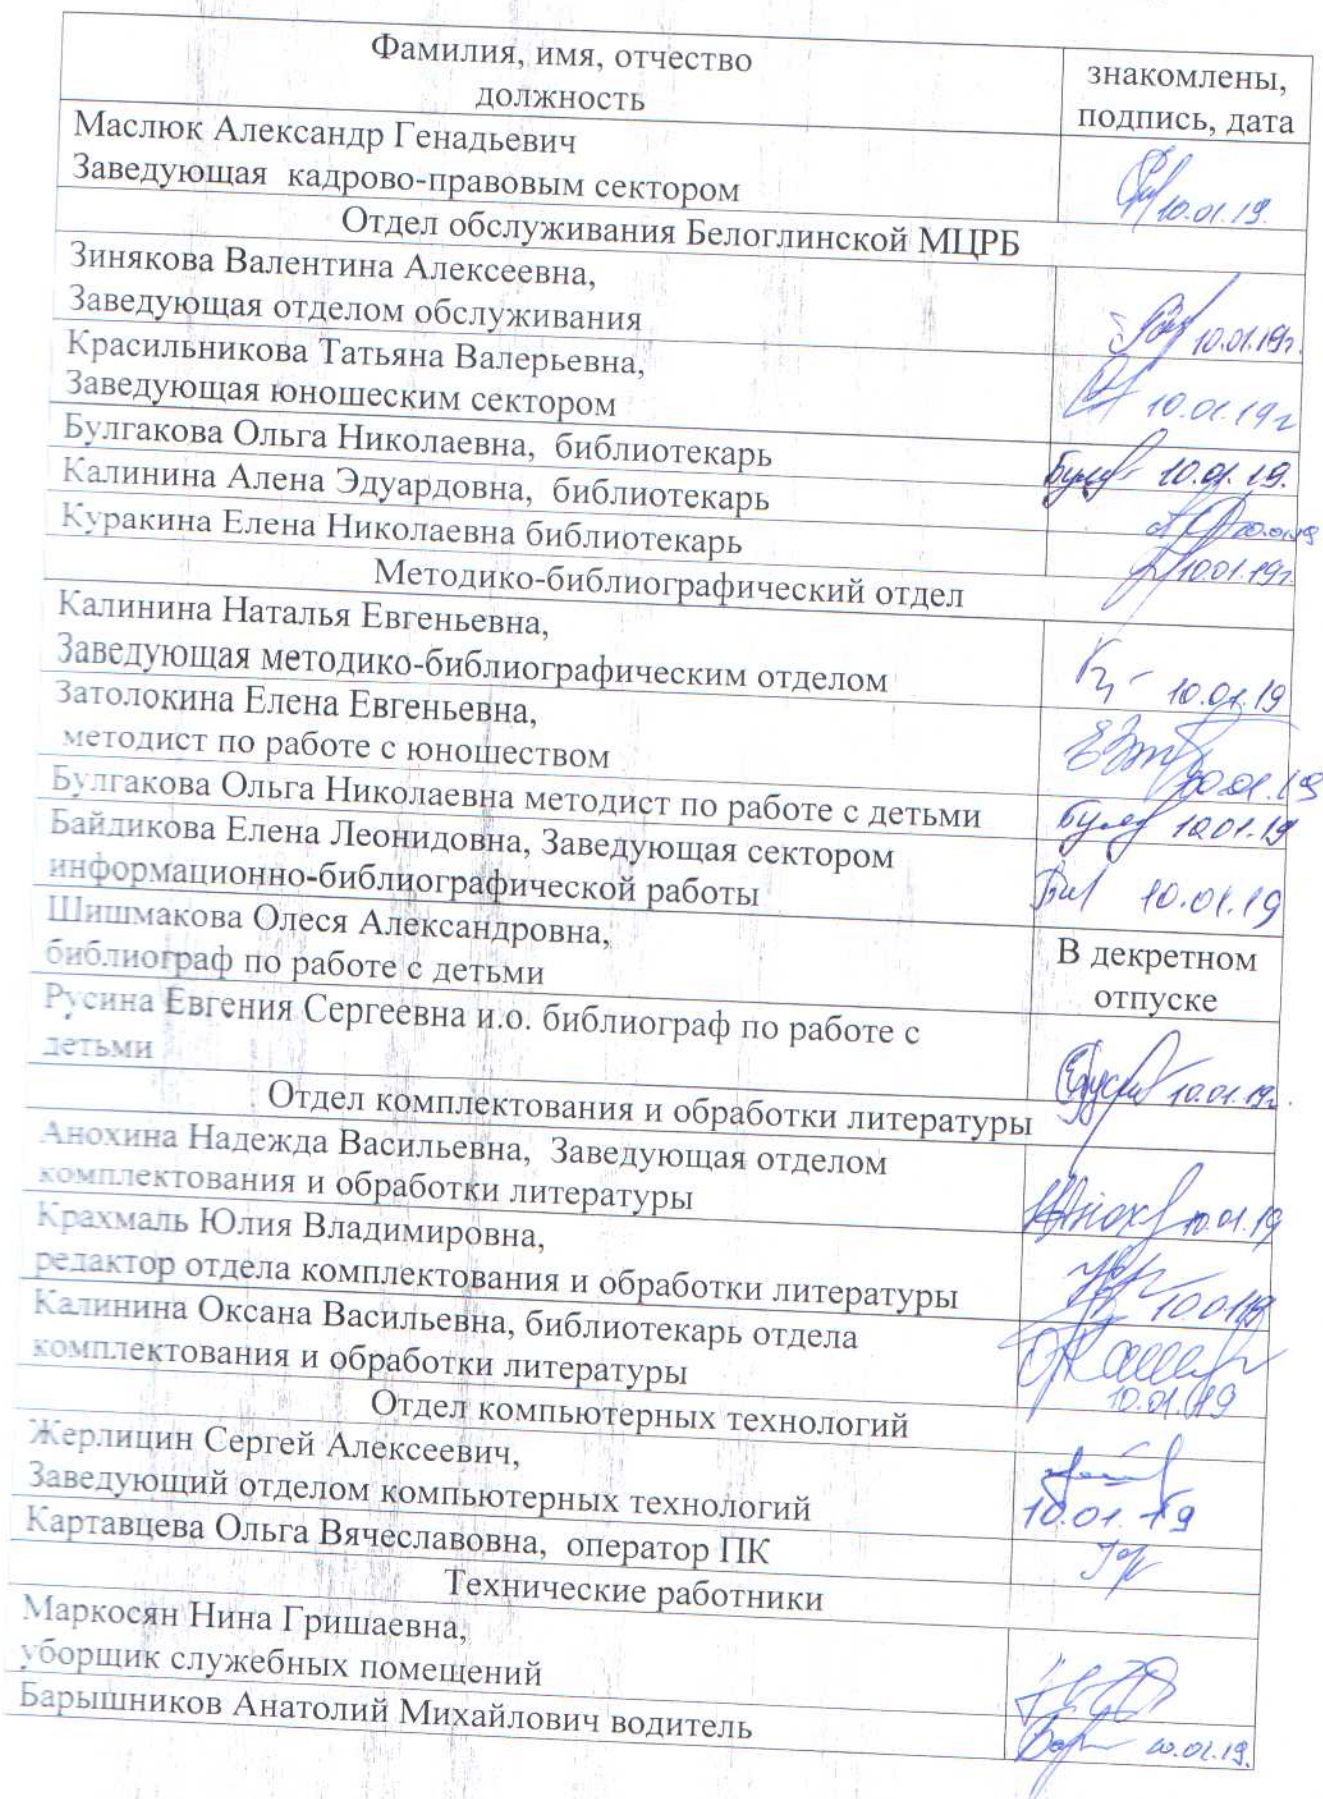 Фамилия, имя, отчество
должность
знакомлены,
подпись, дата
Маслюк Александр Генадьевич
Заведующая кадрово-правовым сектором
10.01.19.
Отдел обслуживания Белоглинской МЦРБ
Зинякова Валентина Алексеевна,
Заведующая отделом обслуживания
10.01.19г.
Красильникова Татьяна Валерьевна,
Заведующая юношеским сектором
10.01.19г
Булгакова Ольга Николаевна, библиотекарь
10.01.19.
Калинина Алена Эдуардовна, библиотекарь
10.01.19
Куракина Елена Николаевна библиотекарь
10.01.19г.
Методико-библиографический отдел
Калинина Наталья Евгеньевна,
Заведующая методико-библиографическим отделом
10.01.19
Затолокина Елена Евгеньевна,
методист по работе с юношеством
10.01.19
Булгакова Ольга Николаевна методист по работе с детьми
10.01.19
Байдикова Елена Леонидовна, Заведующая сектором
информационно-библиографической работы
10.01.19
Шишмакова Олеся Александровна,
библиограф по работе с детьми
В декретном
отпуске
Русина Евгения Сергеевна и.о. библиограф по работе с
детьми
10.01.19г.
Отдел комплектования и обработки литературы
Анохина Надежда Васильевна, Заведующая отделом
комплектования и обработки литературы
10.01.19
Крахмаль Юлия Владимировна,
редактор отдела комплектования и обработки литературы
10.01.19
Калинина Оксана Васильевна, библиотекарь отдела
комплектования и обработки литературы
10.01.19
Отдел компьютерных технологий
Жерлицин Сергей Алексеевич,
Заведующий отделом компьютерных технологий
10.01.19
Картавцева Ольга Вячеславовна, оператор ПК
Технические работники
Маркосян Нина Гришаевна,
уборщик служебных помещений
Барышников Анатолий Михайлович водитель
10.01.19.